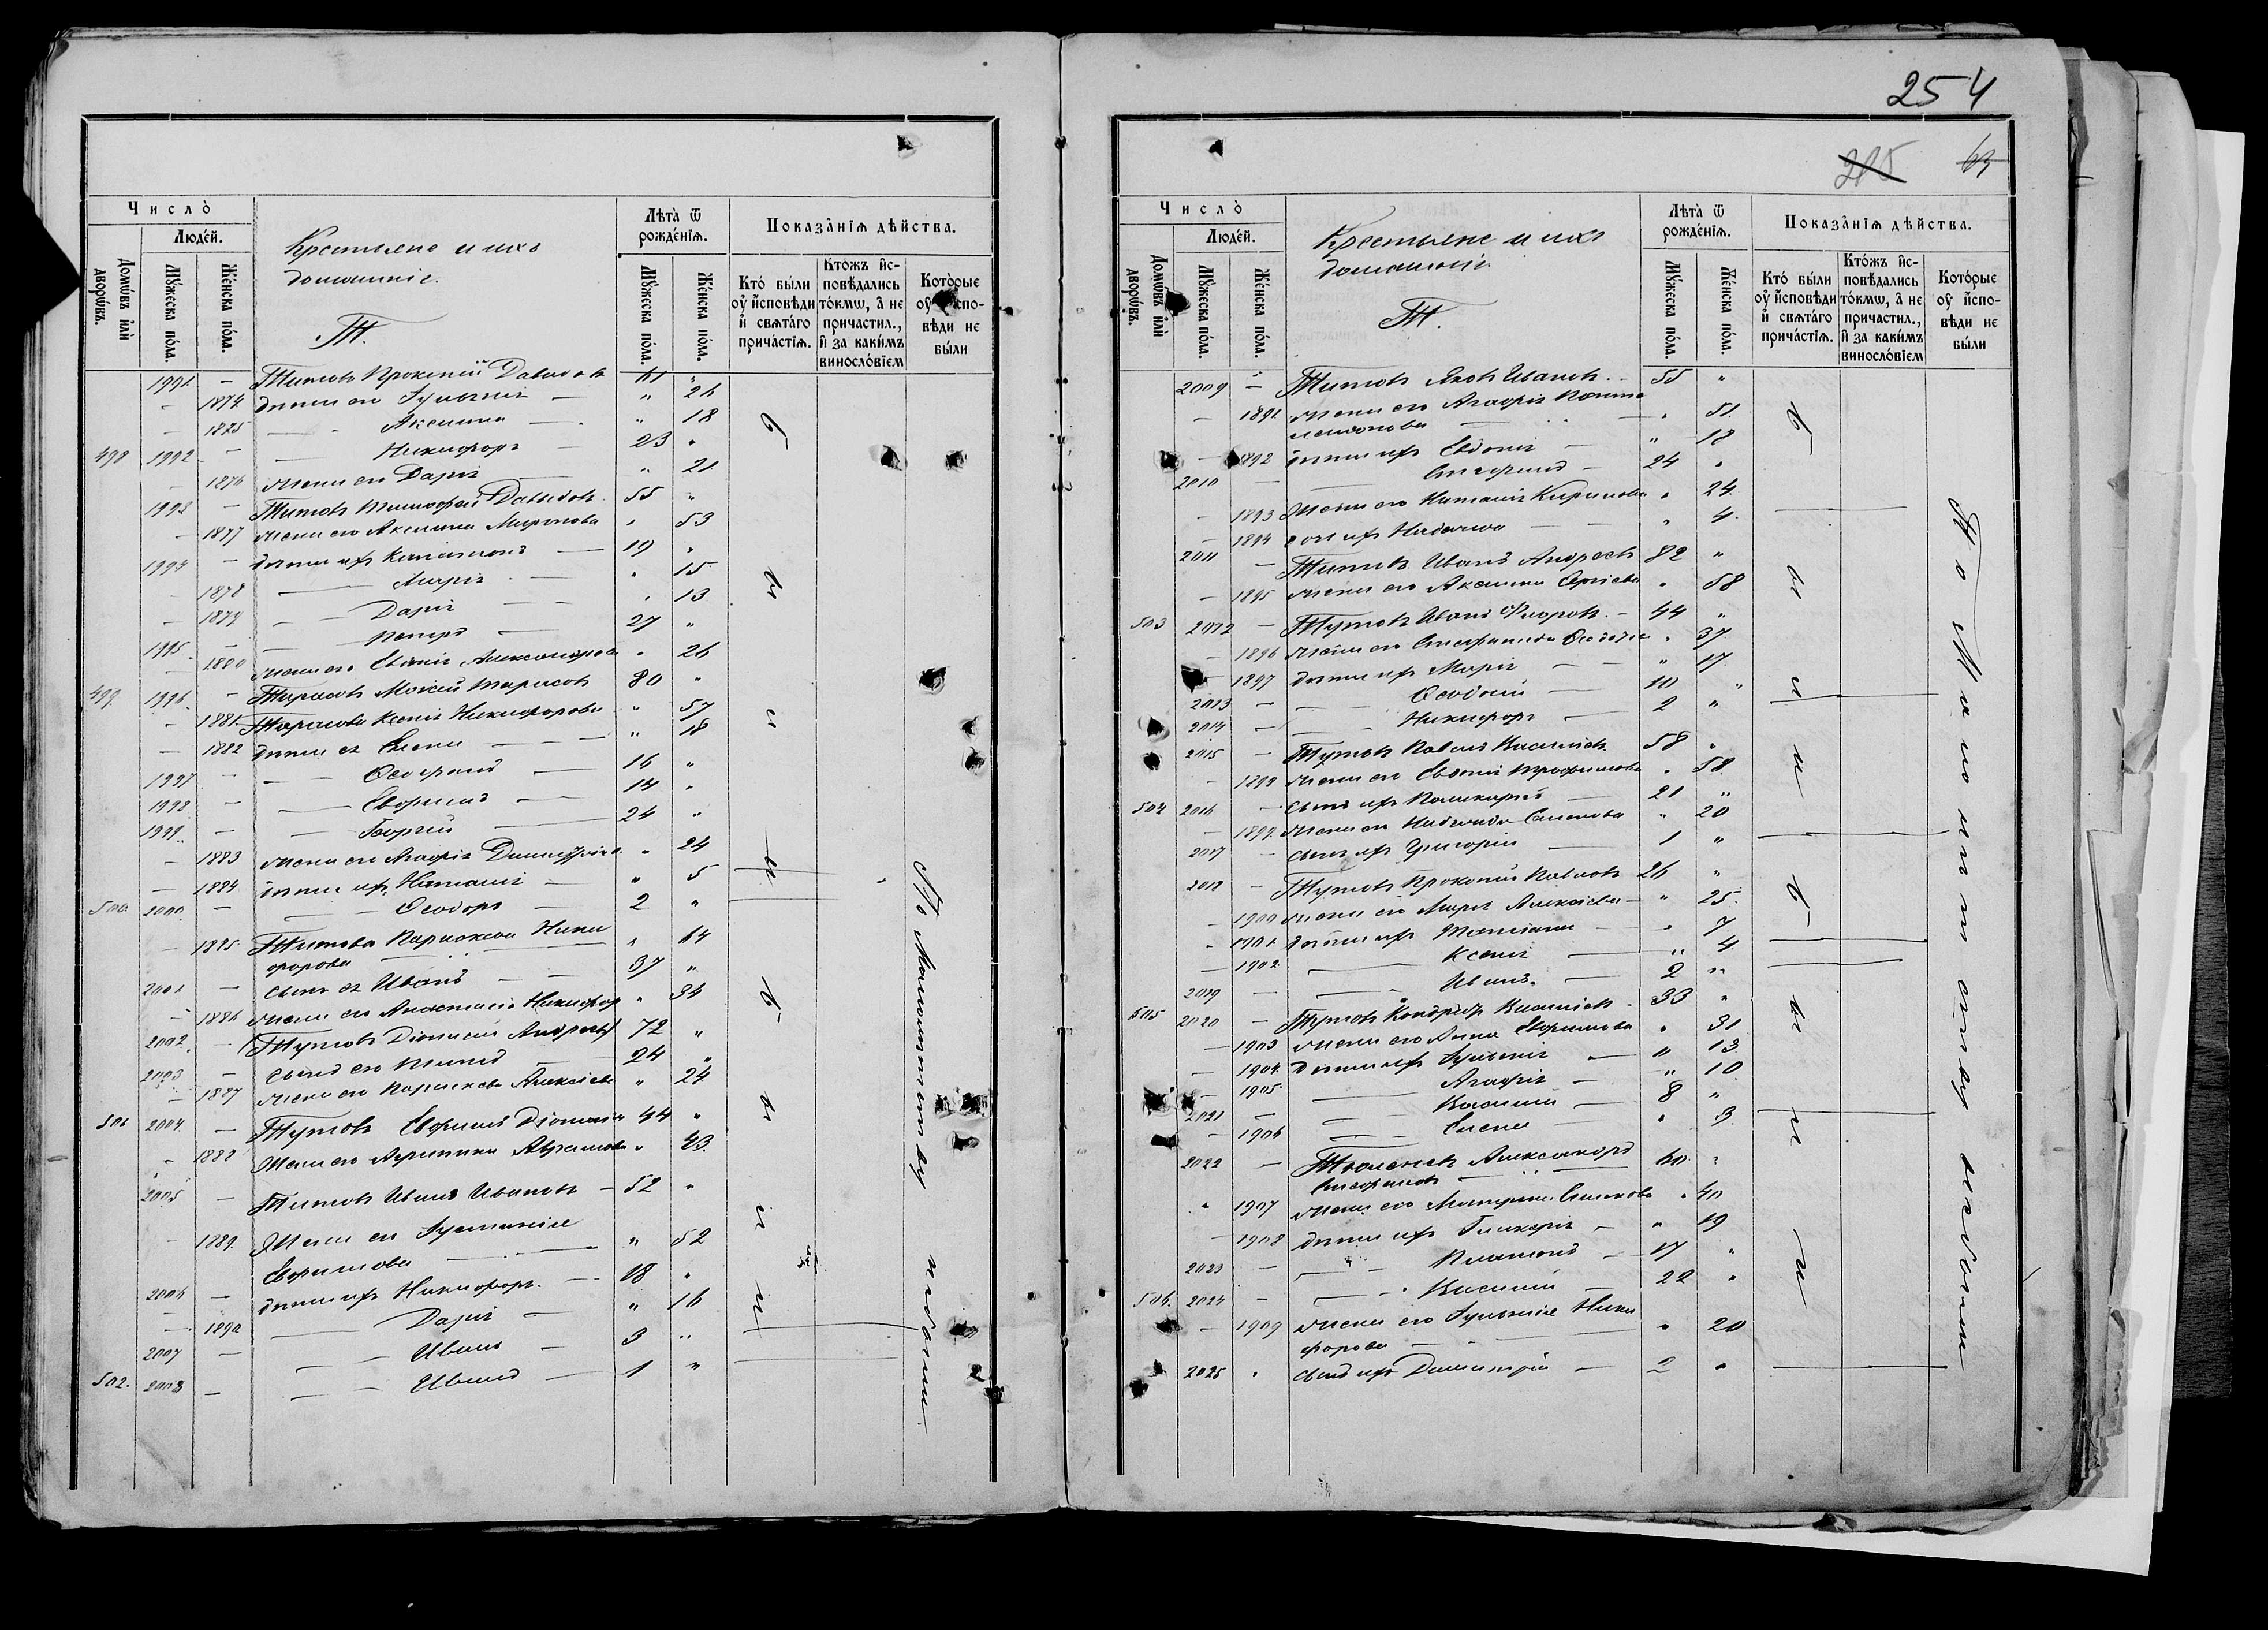 254
215 63
Число̀
Люде́й.
Домѡ́въ и҆лѝ дворѡ́въ.
Мꙋ́жеска по́ла.
Же́нска по́ла.
Крестьяне и ихъ
домашніе.
Т.
Лѣ́та ѿ рожде́нїѧ.
Мꙋ́жеска по́ла.
Же́нска по́ла.
Показа̑нїѧ дѣ́йства.
Кто́ бы́ли оу҆ и҆́сповѣди и҆ свѧта́гѡ прича́стїѧ.
Кто́жъ и҆сповѣ́дались то́кмѡ, а҆ не причасти́л., и҆ за каки́мъ винословїемъ
Кото́рые оу҆ и҆́сповѣди не бы́ли
1991 – Титовъ Прокопій Давидовъ 61 "
– 1874 дѣти его Іуліанія – " 26
– 1875 – Аксинія – " 18
498 1992 – – Никифоръ – 23 "
– 1876 жена его Дарія – " 21
1993 – Титовъ Тимофей Давидовъ 55 "
– 1877 жена его Аксинія Миронова " 53
1994 – дѣти ихъ Капитонъ – 19 "
– 1878 – Марія – " 15
– 1879 – Дарія – " 13
1995 – – Петръ – 27 "
– 1880 жена его Евдокія Александрова " 26
499 1996 – Тарасовъ Мокій Тарасовъ 80 "
– 1881 Тарасова Ксенія Никифорова " 57
– 1882 дѣти ея Елена – " 18
1997 – – Ѳеофанъ – 16 "
1998 – – Ефремъ – 14 "
1999 – – Георгій – 24 "
– 1883 жена его Агафія Димитріева " 24
– 1884 дѣти ихъ Наталія – " 5
500 2000 – – Ѳеодоръ – 2 "
– 1885 Титова Параскева Ники
форова – " 64
2001 – сынъ ея Иванъ – 37 "
– 1886 жена его Анастасія Никифор " 34
2002 – Тутовъ Діонисій Андреевъ 72 "
2003 – сынъ его Филиппъ – 24 "
– 1887 жена его Параскева Алексѣева " 24
501 2004 – Тутовъ Ефремъ Діонисіев 44 "
– 1888 Жена его Агрипина Абрамова " 43
2005 – Титовъ Иванъ Ивановъ – 52 "
– 1889 Жена его Іустинія
Ефремова – " 52
2006 – дѣти ихъ Никифоръ – 18 "
– 1890 – Дарія – " 16
2007 – – Иванъ – 3 "
502 2008 – – Иванъ – 1 "
б ы л и
б ы л и
По Малолѣтству небыли.
Число̀
Люде́й.
Домѡ́въ и҆лѝ дворѡ́въ.
Мꙋ́жеска по́ла.
Же́нска по́ла.
Крестьяне и ихъ
домашніе
Т.
Лѣ́та ѿ рожде́нїѧ.
Мꙋ́жеска по́ла.
Же́нска по́ла.
Показа̑нїѧ дѣ́йства.
Кто́ бы́ли оу҆ и҆́сповѣди и҆ свѧта́гѡ прича́стїѧ.
Кто́жъ и҆сповѣ́дались то́кмѡ, а҆ не причасти́л., и҆ за каки́мъ винословїемъ
Кото́рые оу҆ и҆́сповѣди не бы́ли
2009 – Титовъ Яковъ Ивановъ – 55 "
– 1891 жена его Агафія
– " 51
– 1892 дѣти ихъ Евдокія – " 18
2010 – – Стефанъ – 24 "
– 1893 Жена его Наталія Кирилова " 24
– 1894 дочь ихъ Надежда – " 4
2011 – Титовъ Иванъ Андреевъ 82 "
– 1895 жена его Аксинія Сергіева " 58
503 2012 – Тутовъ Иванъ Флоровъ – 44 "
– 1896 жена его Стефанида " 37
– 1897 дѣти ихъ Марія – " 17
2013 – – Ѳеодосій – 10 "
2014 – – Никифоръ – 2 "
2015 – Тутовъ Павелъ Василіевъ 58 "
– 1898 жена его Евдокія Трофимова " 58
504 2016 – сынъ ихъ Поликарпъ – 21 "
– 1899 Жена его Надежда Семенова " 20
2017 – сынъ ихъ Григорій – 1 "
2018 – Тутовъ Прокопій Павловъ 26 "
– 1900 жена его Марѳа Алексѣева – " 25
– 1901 дѣти ихъ Татіана – " 7
– 1902 – Ксенія – " 4
2019 – – Иванъ – 2 "
505 2020 – Тутовъ Кондратъ Василіевъ – 33 "
– 1903 жена его Анна Ефремова " 31
– 1904 дѣти ихъ Іуліанія – " 13
– 1905 – Агафія – " 10
2021 – – Василій – 8 "
– 1906 – Елена – " 3
2022 – Тюленевъ Александръ
Стефановъ – 60 "
" 1907 жена его Матрона Симонова " 40
– 1908 дѣти ихъ Гликерія – " 19
2023 – – Платонъ – 17 "
506 2024 – – Василій – 22 "
– 1909 жена его Іуліанія Ники
форова – " 20
2025 " сынъ ихъ Димитрій – 2 "
б ы л и
б ы л и
По Малолѣтству небыли